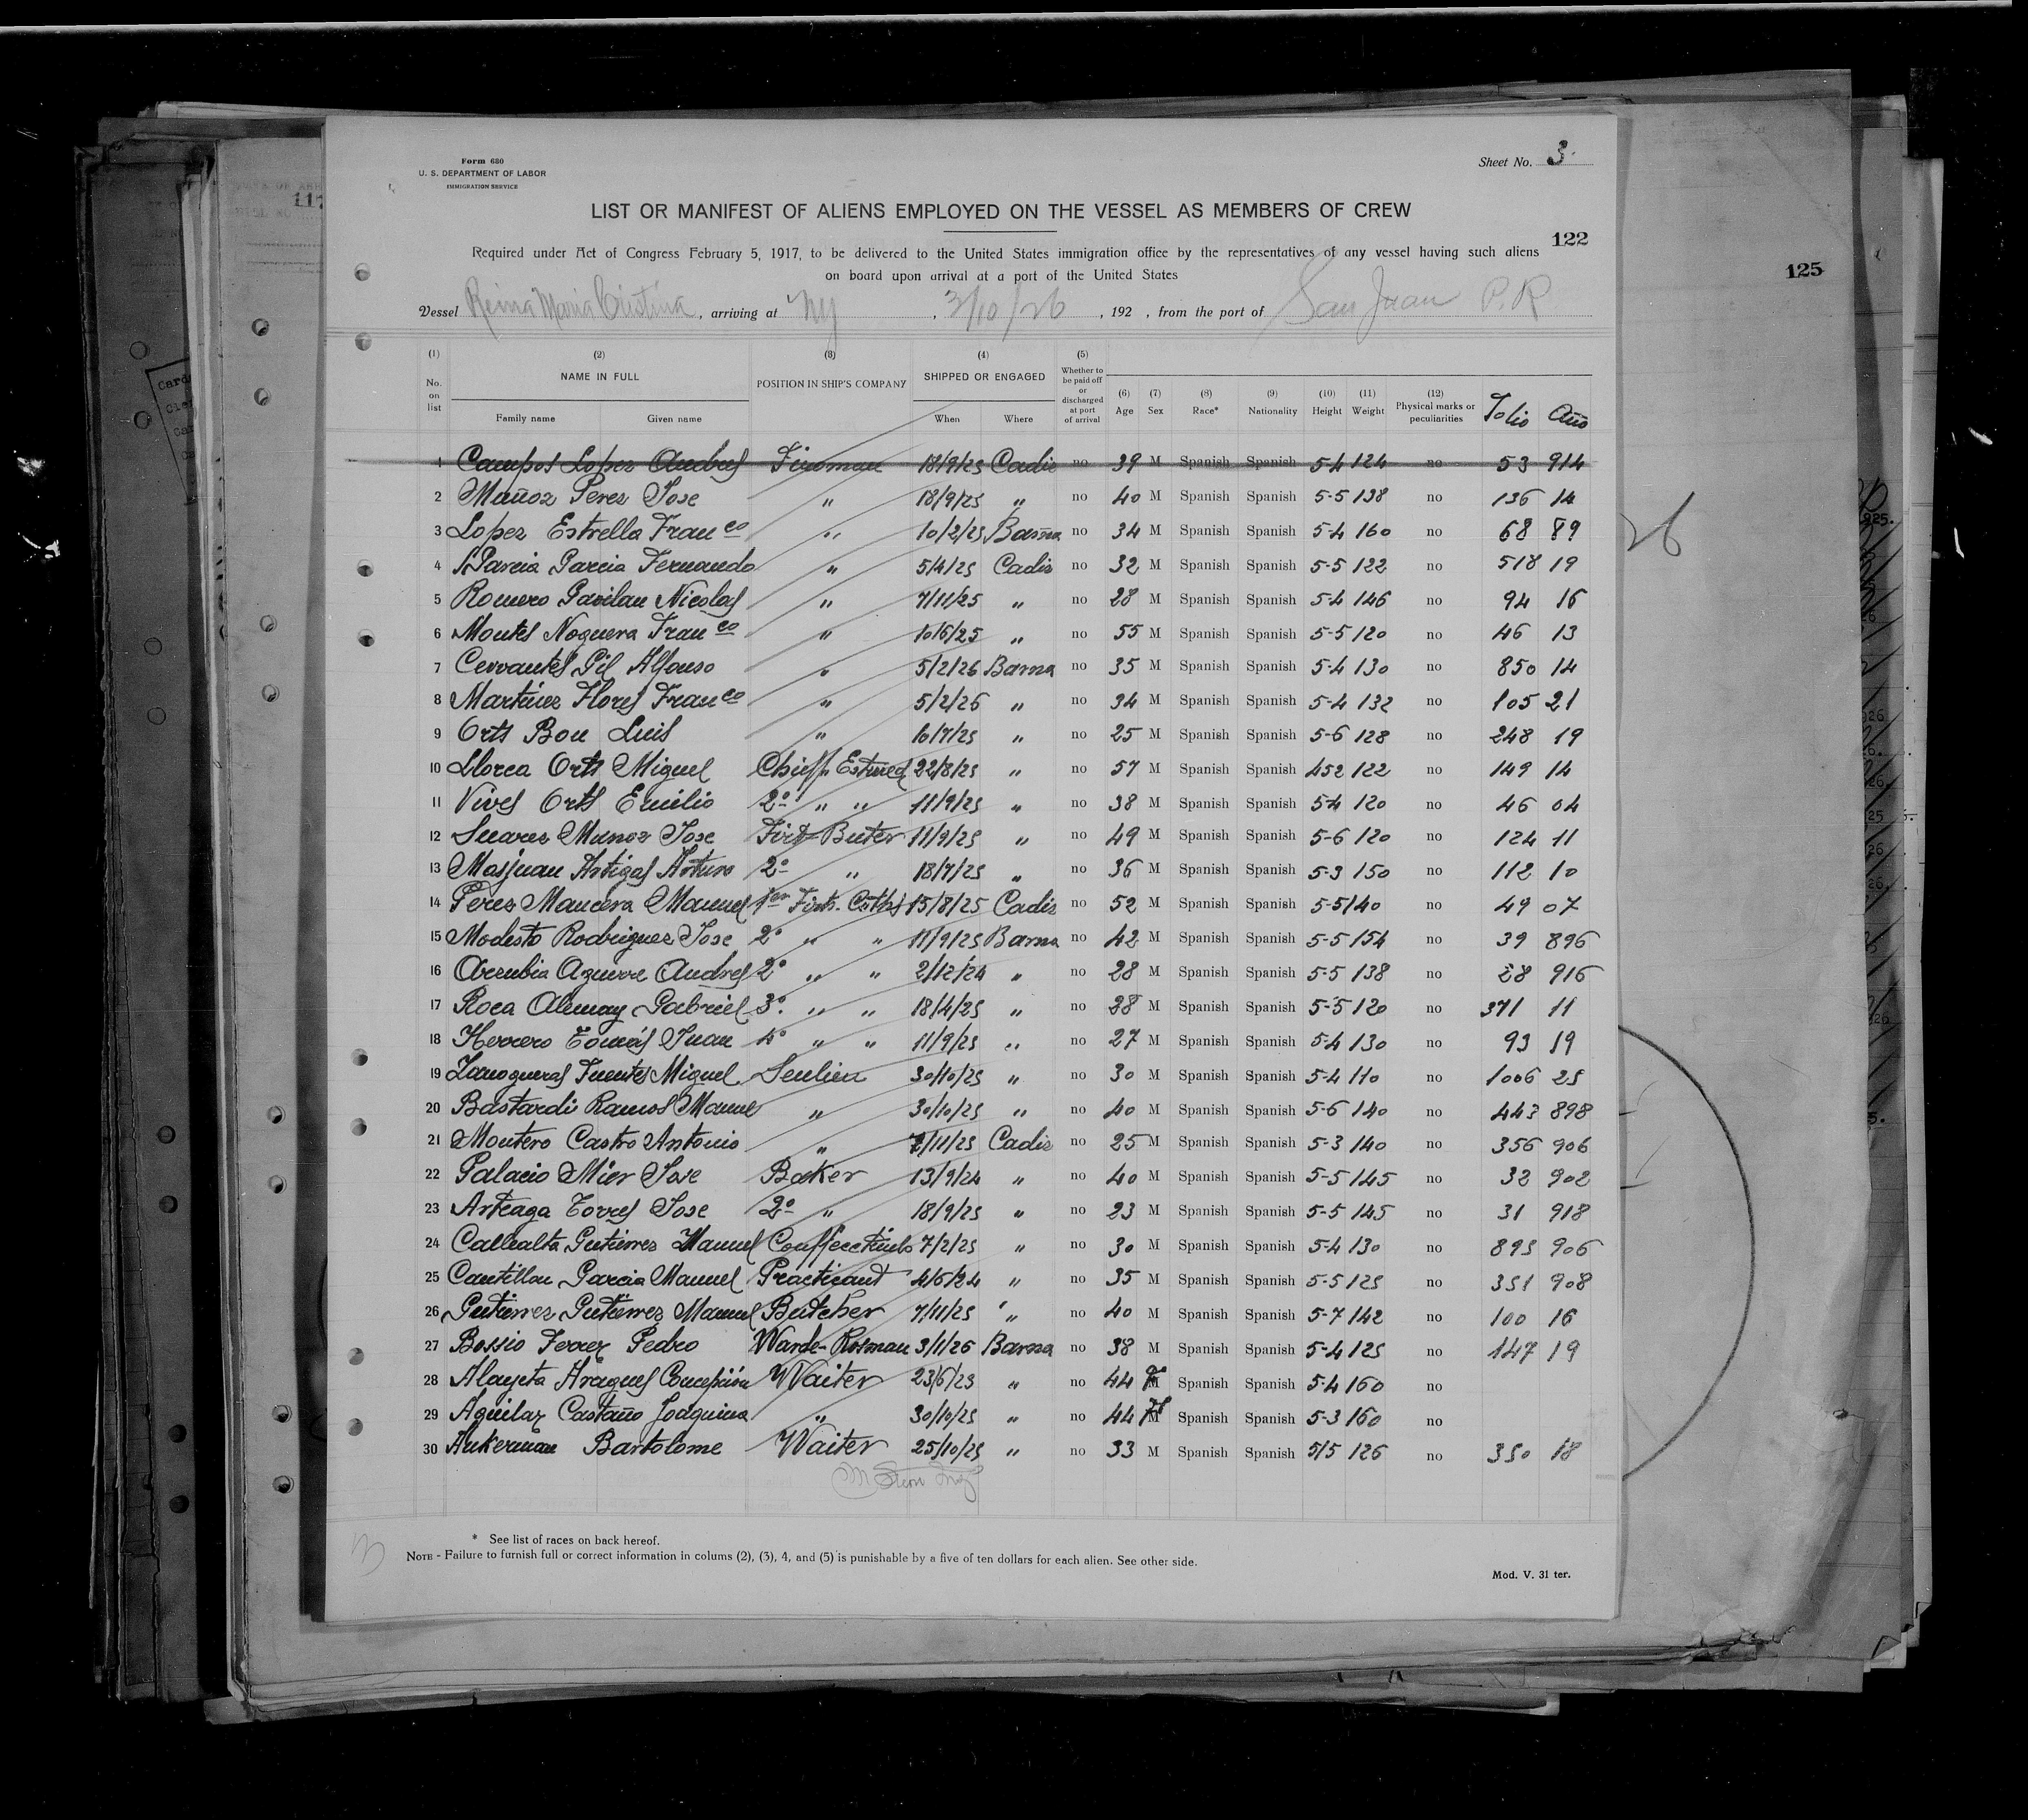 Form 680
U. S. DEPARTMENT OF LABOR
IMMIGRATION SERVICE
Sheet No. 3.
LIST OR MANIFEST OF ALIENS EMPLOYED ON THE VESSEL AS MEMBERS OF CREW
122
125
117
Required under Act of Congress February 5, 1917, to be delivered to the United States immigration office by the representatives of any vessel having such aliens
on board upon arrival at a port of the United States
Vessel Reina Maria Cristina, arriving at NY, 3/10/26, 192 , from the port of San Juan P.R
(1) (2) (3) (4) (5) (6) (7) (8) (9) (10) (11) (12)
No. on list NAME IN FULL Family name Given name POSITION IN SHIP'S COMPANY SHIPPED OR ENGAGED When Where Whether to be paid off or discharged at port of arrival Age Sex Race* Nationality Height Weight Physical marks or peculiarities Folio Año
1 Campos Lopez Andres Fireman 18/9/25 Cadiz no 39 M Spanish Spanish 5-4 124 no 53 914
2 Muñoz Perez Jose " 18/9/25 " no 40 M Spanish Spanish 5-5 138 no 136 14
3 Lopez Estrella Franco " 10/2/25 Barna no 34 M Spanish Spanish 5-4 160 no 68 89
4 Garcia Garcia Fernando " 5/4/25 Cadiz no 32 M Spanish Spanish 5-5 122 no 518 19
5 Romero Gavilan Nicolas " 7/11/25 " no 28 M Spanish Spanish 5-4 146 no 94 16
6 Montes Noguera Franco " 10/6/25 " no 55 M Spanish Spanish 5-5 120 no 46 13
7 Cervantes Gil Alfonso " 5/2/26 Barna no 35 M Spanish Spanish 5-4 130 no 850 14
8 Martinez Flores Franco " 5/2/26 " no 34 M Spanish Spanish 5-4 132 no 105 21
9 Orts Bou Luis " 16/7/25 " no 25 M Spanish Spanish 5-6 128 no 248 19
10 Llorca Orts Miguel Chieff 22/8/25 " no 57 M Spanish Spanish 452 122 no 149 14
11 Vives Orts Emilio 2º " " 11/9/25 " no 38 M Spanish Spanish 5-4 120 no 46 04
12 Suarez Munoz Jose First Buter 11/9/25 " no 49 M Spanish Spanish 5-6 120 no 124 11
13 Masjuan Artigas Arturo 2º " 18/7/25 " no 36 M Spanish Spanish 5-3 150 no 112 10
14 Perez Mancera Manuel 1er 15/8/25 Cadiz no 52 M Spanish Spanish 5-5 140 no 49 07
15 Modesto Rodriguez Jose 2º " " 11/9/25 Barna no 42 M Spanish Spanish 5-5 154 no 39 896
16 Aguirre Andres 2º " " 2/12/24 " no 28 M Spanish Spanish 5-5 138 no 28 916
17 Roca Alemany Gabriel 3º " " 18/4/25 " no 28 M Spanish Spanish 5-5 120 no 371 11
18 Herrero Tomás Juan 4º " " 11/9/25 " no 27 M Spanish Spanish 5-4 130 no 93 19
19 Zanogueras Fuentes Miguel 30/10/25 " no 30 M Spanish Spanish 5-4 110 no 1006 25
20 Bastardi Ramos Manuel " 30/10/25 " no 40 M Spanish Spanish 5-6 140 no 443 898
21 Montero Castro Antonio " 7/11/25 Cadiz no 25 M Spanish Spanish 5-3 140 no 356 906
22 Palacio Mier Jose Baker 13/9/24 " no 40 M Spanish Spanish 5-5 145 no 32 902
23 Arteaga Torres Jose 2º " 18/9/25 " no 23 M Spanish Spanish 5-5 145 no 31 918
24 Gutierrez Manuel 7/2/25 " no 30 M Spanish Spanish 5-4 130 no 895 906
25 Cantillan Garcia Manuel Practicant 4/6/24 " no 35 M Spanish Spanish 5-5 125 no 351 908
26 Gutierrez Gutierrez Manuel Butcher 7/11/25 " no 40 M Spanish Spanish 5-7 142 no 100 16
27 Bossio Ferrer Pedro Warde-Rosman 3/1/26 Barna no 38 M Spanish Spanish 5-4 125 no 147 19
28 Alayeta Aragues Concepción Waiter 23/6/25 " no 44 F Spanish Spanish 5-4 160 no
29 Aguilar Castaño Joaquina " 30/10/25 " no 44 F Spanish Spanish 5-3 160 no
30 Ankerman Bartolome Waiter 25/10/25 " no 33 M Spanish Spanish 5/5 126 no 350 18
* See list of races on back hereof.
NOTE - Failure to furnish full or correct information in colums (2), (3), 4, and (5) is punishable by a five of ten dollars for each alien. See other side.
Mod. V. 31 ter.
3
26